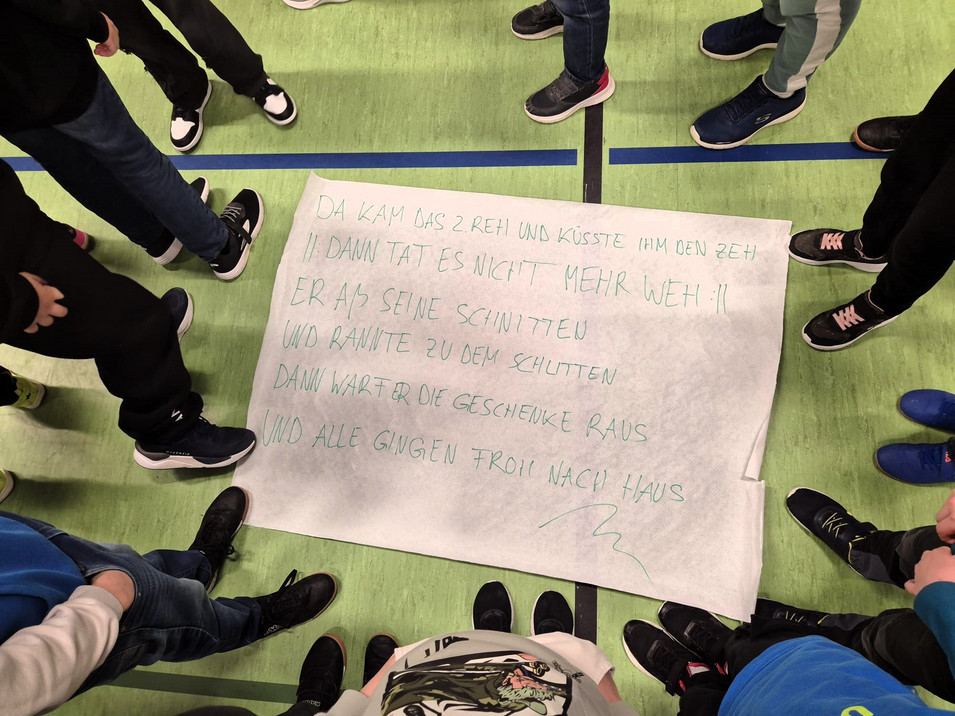 DA KAM DAS 2 REH UND KÜSSTE IHM DEN ZEH
||: DANN TAT ES NICHT MEHR WEH :||
ER Aß SEINE SCHNITTEN
UND RANNTE ZU DEM SCHLITTEN
DANN WARF ER DIE GESCHENKE RAUS
UND ALLE GINGEN FROH NACH HAUS